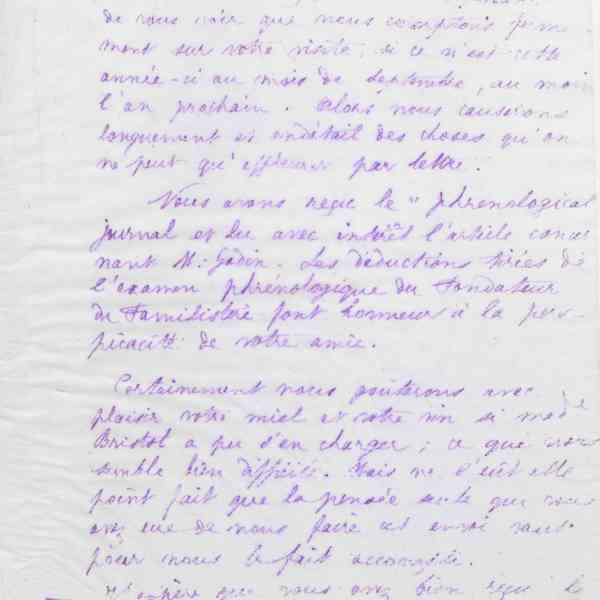 de vous voir que nous comptons
ment sur votre visite; si ce n'est cette
année-ci au mois de Septembre, au moins
l'an prochain. Alors nous causerons
longuement et en détail des choses qu'on
ne peut qu'effleurer par lettre.
Nous avons reçu le "phrenological
journal et lu avec intérêt l'article concer
nant M. Godin. Les déductions tirées de
l'examen phrénologique du Fondateur
du Familistère font honneur à la pers-
picacité de votre amie.
Certainement nous goûterons avec
plaisir votre miel et votre vin si made
Bristol a pu s'en charger; ce que nous
semble bien difficile. Mais ne l'eût-elle
point fait que la pensée seule que vous
avez eue de nous faire cet envoi vaut
pour nous le fait accompli.
que vous avez bien reçu le